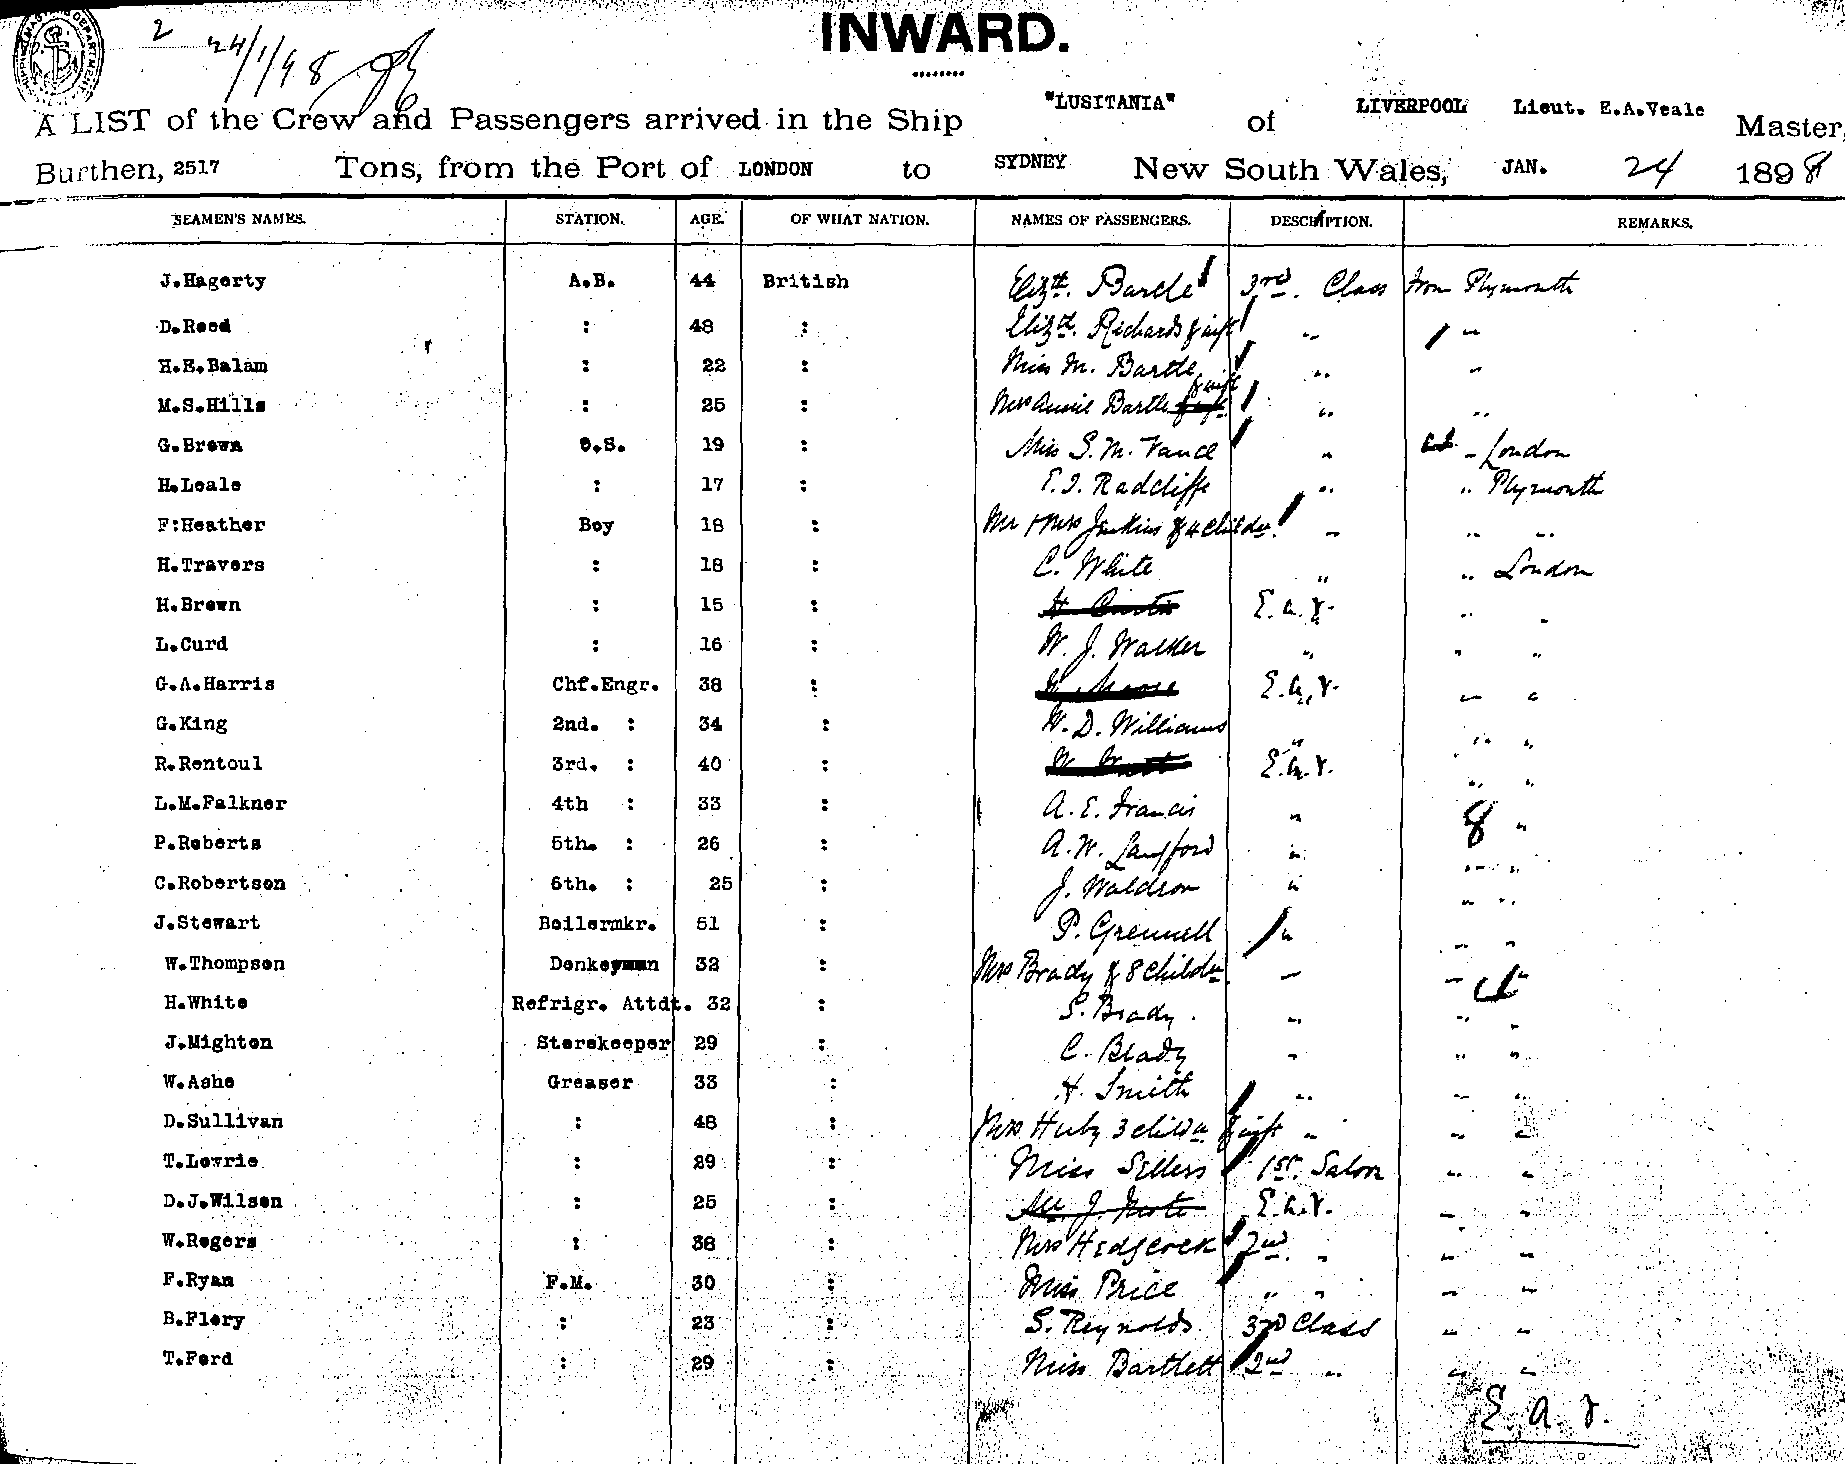 2 24/1/98
INWARD.
A LIST of the Crew and Passengers arrived in the Ship "LUSITANIA" of LIVERPOOL Lieut. E.A.Veale Master,
Burthen, 2517 Tons, from the Port of LONDON to SYDNEY New South Wales, JAN. 24 1898
SEAMEN'S NAMES. STATION. AGE. OF WHAT NATION. NAMES OF PASSENGERS. DESCRIPTION. REMARKS.
J.Hagerty A.B. 44 British Elizth. Bartle 3rd. Class from Plymouth
D.Reed : 48 : Elizth. Richards & inft " "
H.E.Balam : 22 : Miss M. Bartle " "
M.S.Hills : 25 : Mrs Annie Bartle & inft " "
G.Brown O.S. 19 : Miss S. M. Vance " " London
H.Leale : 17 : E. J. Radcliffe " " Plymouth
F:Heather Boy 18 : Mr & Mrs Jenkins & 4 childn. " " "
H.Travers : 18 : C. White " " London
H.Brown : 15 : H. Curtis E.a.r. " "
L.Curd : 16 : W. J. Walker " " "
G.A.Harris Chf.Engr. 38 : E.a.r. " "
G.King 2nd. : 34 : W. D. Williams " " "
R.Rentoul 3rd. : 40 : E.a.r. " "
L.M.Falkner 4th : 33 : A. E. Francis " 8 "
P.Roberts 5th. : 26 : A. W. Langford " " "
C.Robertson 6th. : 25 : J. Waldron " " "
J.Stewart Boilermkr. 51 : P. Grennell " " "
W.Thompson Donkeyman 32 : Mrs Brady & 8 childn " " "
H.White Refrigr. Attdt. 32 : S. Brady. " " "
J.Mighton Storekeeper 29 : C. Brady " " "
W.Ashe Greaser 33 : H. Smith " " "
D.Sullivan : 48 : Mrs Huby 3 childn & inft " " "
T.Lowrie : 29 : Miss Sellers 1st. Saloon " "
D.J.Wilson : 25 : Mr J. E.a.r. " "
W.Rogers : 38 : Mrs Hedgcock 2nd. " " "
F.Ryan F.M. 30 : Miss Price " " " "
B.Flory : 23 : S. Reynolds 3rd Class " "
T.Ford : 29 : Miss Bartlett 2nd " " "
E. a. r.